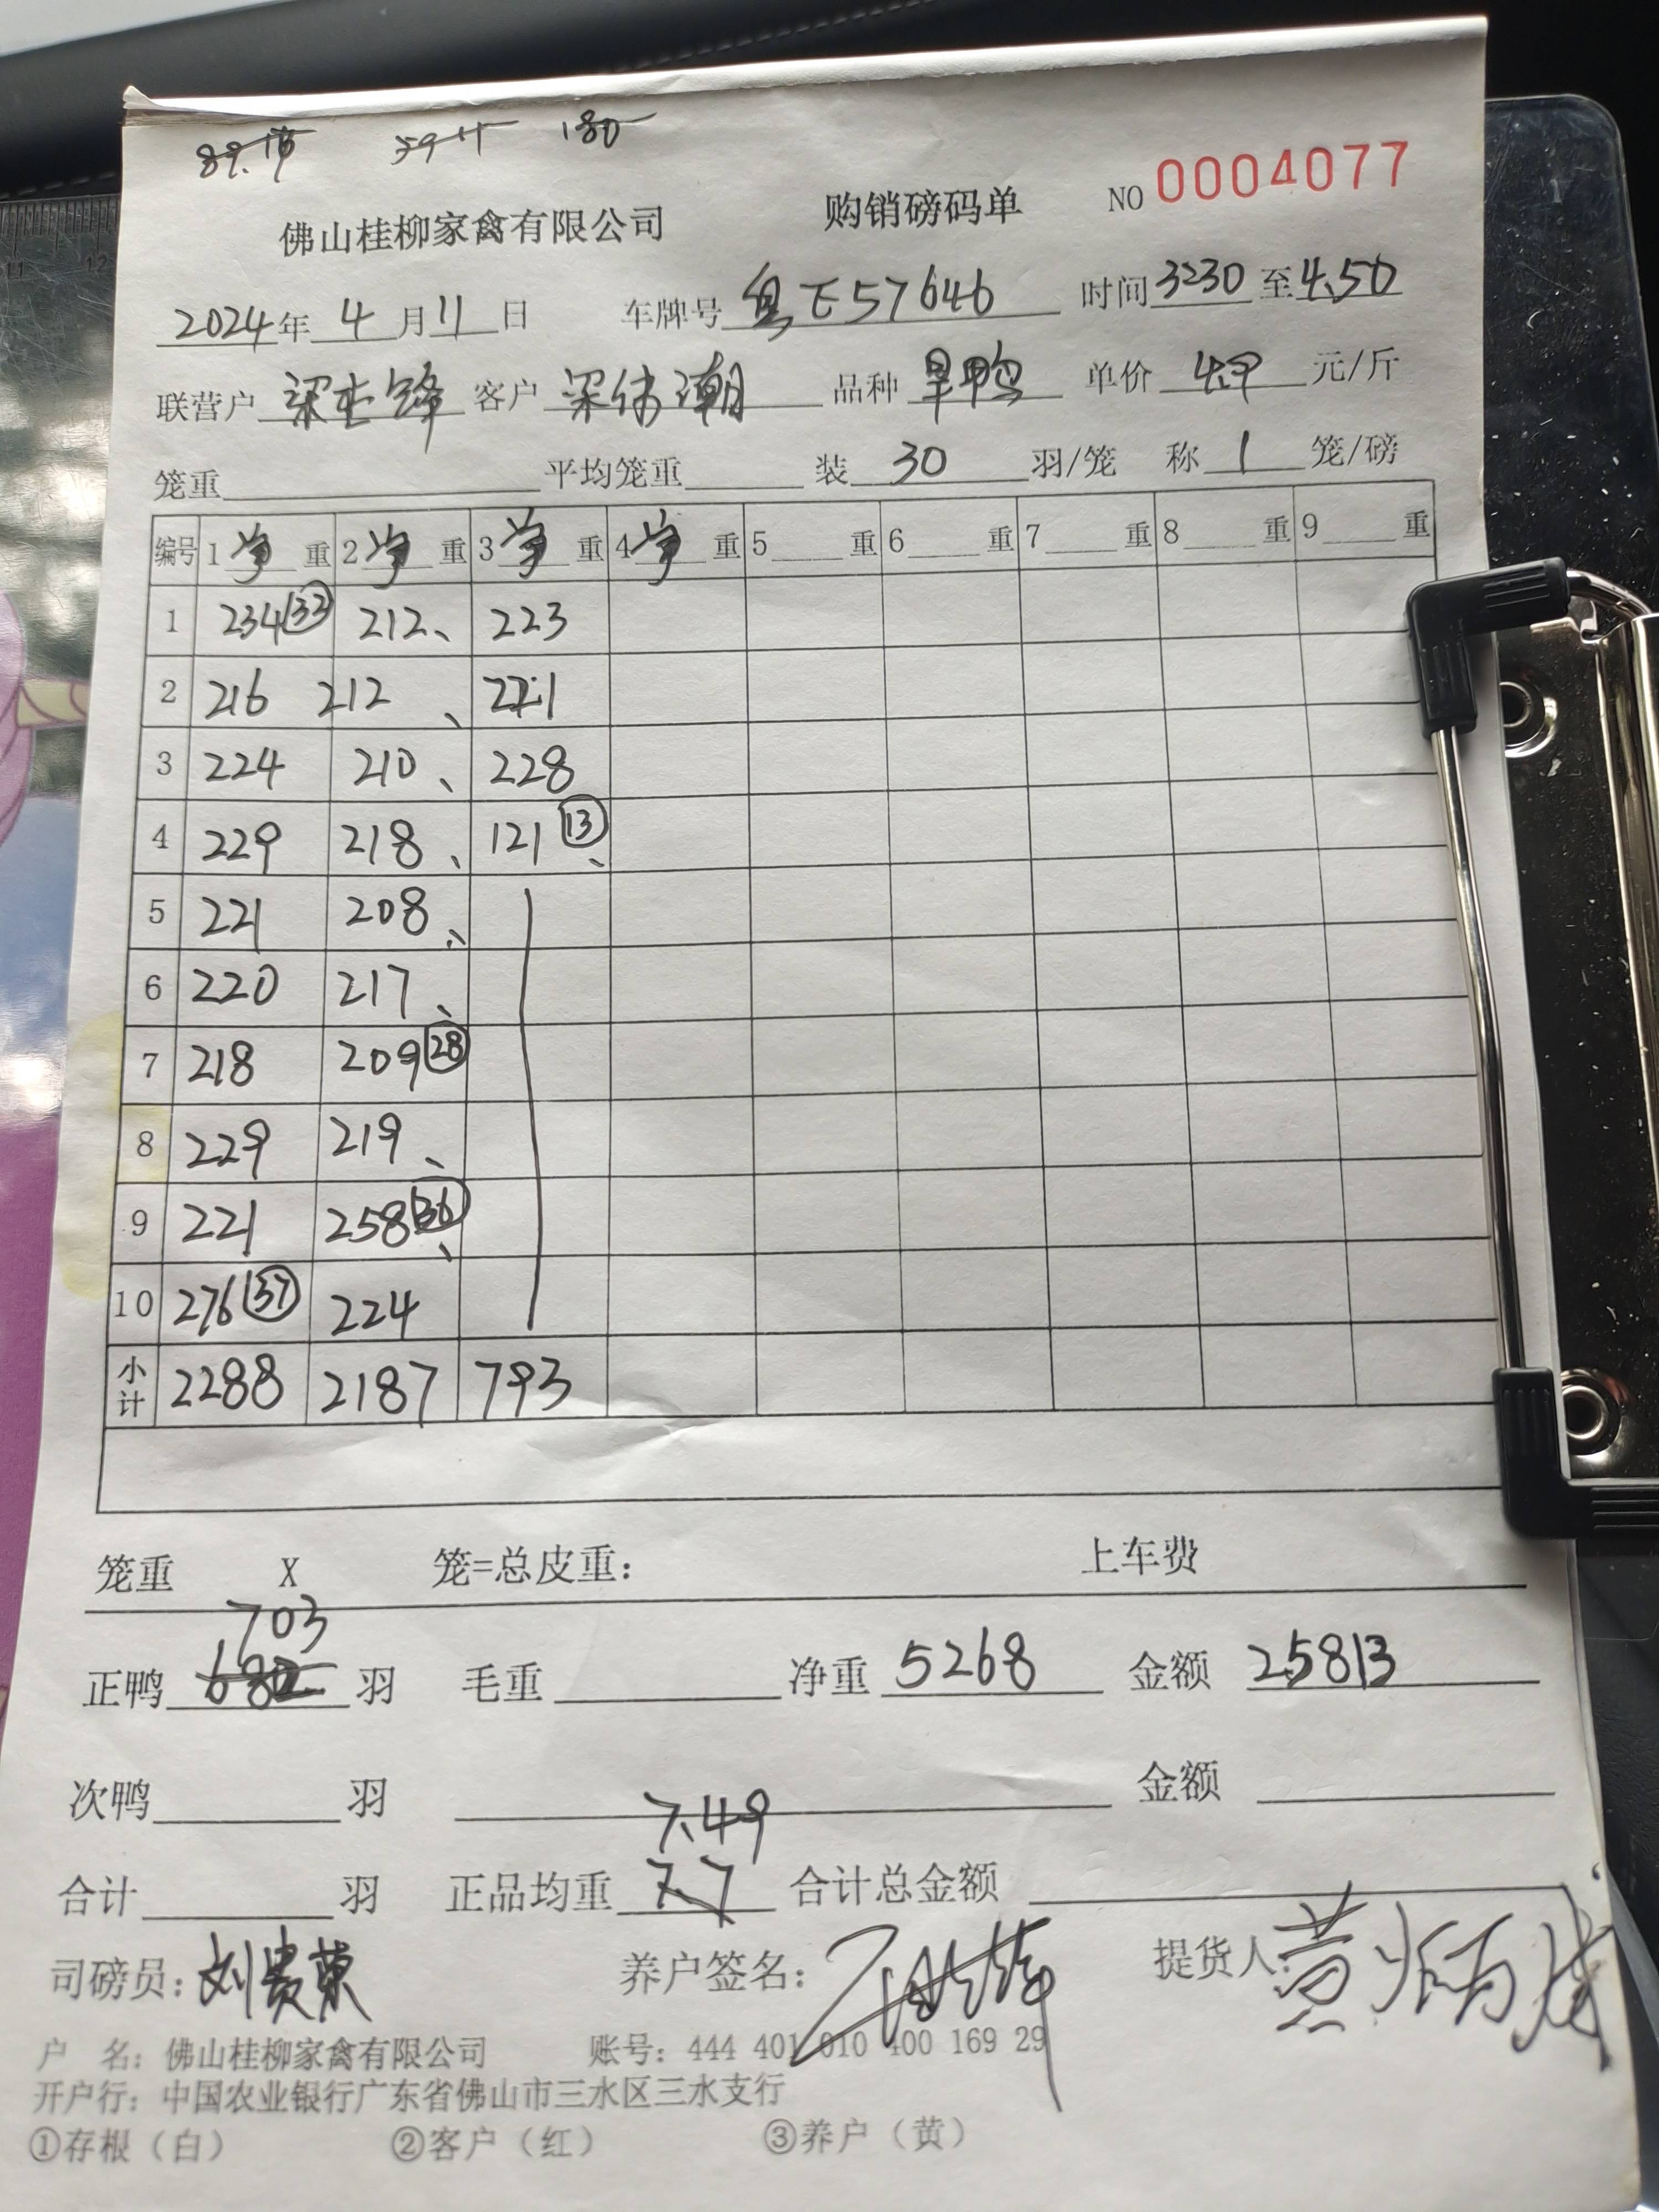 佛山桂柳家禽有限公司 购销磅码单 NO 0004077
2024年 4 月 11 日 车牌号 粤E57646 时间 3230 至 4.50
联营户 客户 梁伟潮 品种 旱鸭 单价 4.9 元/斤
笼重 平均笼重 装 30 羽/笼 称 1 笼/磅
编号 1 净 重 2 净 重 3 净 重 4 净 重 5 重 6 重 7 重 8 重 9 重
1 234 (33) 212、 223
2 216 212 、 221
3 224 210 、 228
4 229 218 、 121 (13)、
5 221 208 、
6 220 217 、
7 218 209 (28)
8 229 219 、
9 221 258 (36)、
10 276 (37) 224
小计 2288 2187 793
笼重 X 笼=总皮重： 上车费
703
正鸭 羽 毛重 净重 5268 金额 25813
次鸭 羽 金额
7.49
合计 羽 正品均重 7.7 合计总金额
司磅员：刘贵荣 养户签名： 提货人：黄炳成
户 名：佛山桂柳家禽有限公司 账号：444 401 010 400 169 29
开户行：中国农业银行广东省佛山市三水区三水支行
①存根（白） ②客户（红） ③养户（黄）